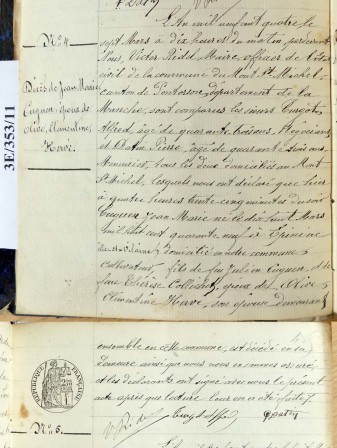 3E/353/11
N° 4.
Décès de Jean Marie
Cuguen, époux de
Olive, Clémentine,
Hervé.
L'An mil neuf cent quatre le
sept Mars à dix heures du matin, par devant
Nous, Victor Ridel, Maire, officier de l'état
civil de la commune du Mont St Michel,
canton de Pontorson, département de la
Manche, sont comparus les sieurs
Alfred, âgé de quarante trois ans, Négociant
et Pierre, âgé de quarante trois ans,
tous les deux domiciliés au Mont
St Michel, lesquels nous ont déclaré que hier
à quatre heures trente cinq minutes du soir
Cuguen Jean Marie né le dix huit Mars
mil huit cent quarante neuf à Epiniac
Ille et Vilaine, domicilié en notre commune
Cultivateur, fils de feu Julien Cuguen et de
feue Thérèse époux de Olive
Clémentine Hervé, son épouse demeurant
ensemble en cette commune, est décédé en sa
demeure ainsi que nous nous en sommes assuré,
et les déclarants ont signé avec nous le présent
acte après que lecture leur en a été faite.
RÉPUBLIQUE FRANÇAISE
N° 5.